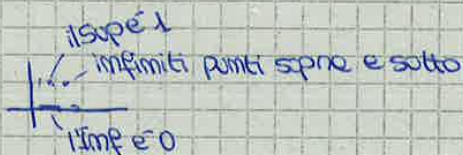 il sup è 1
infiniti punti sopra e sotto
l'inf è 0